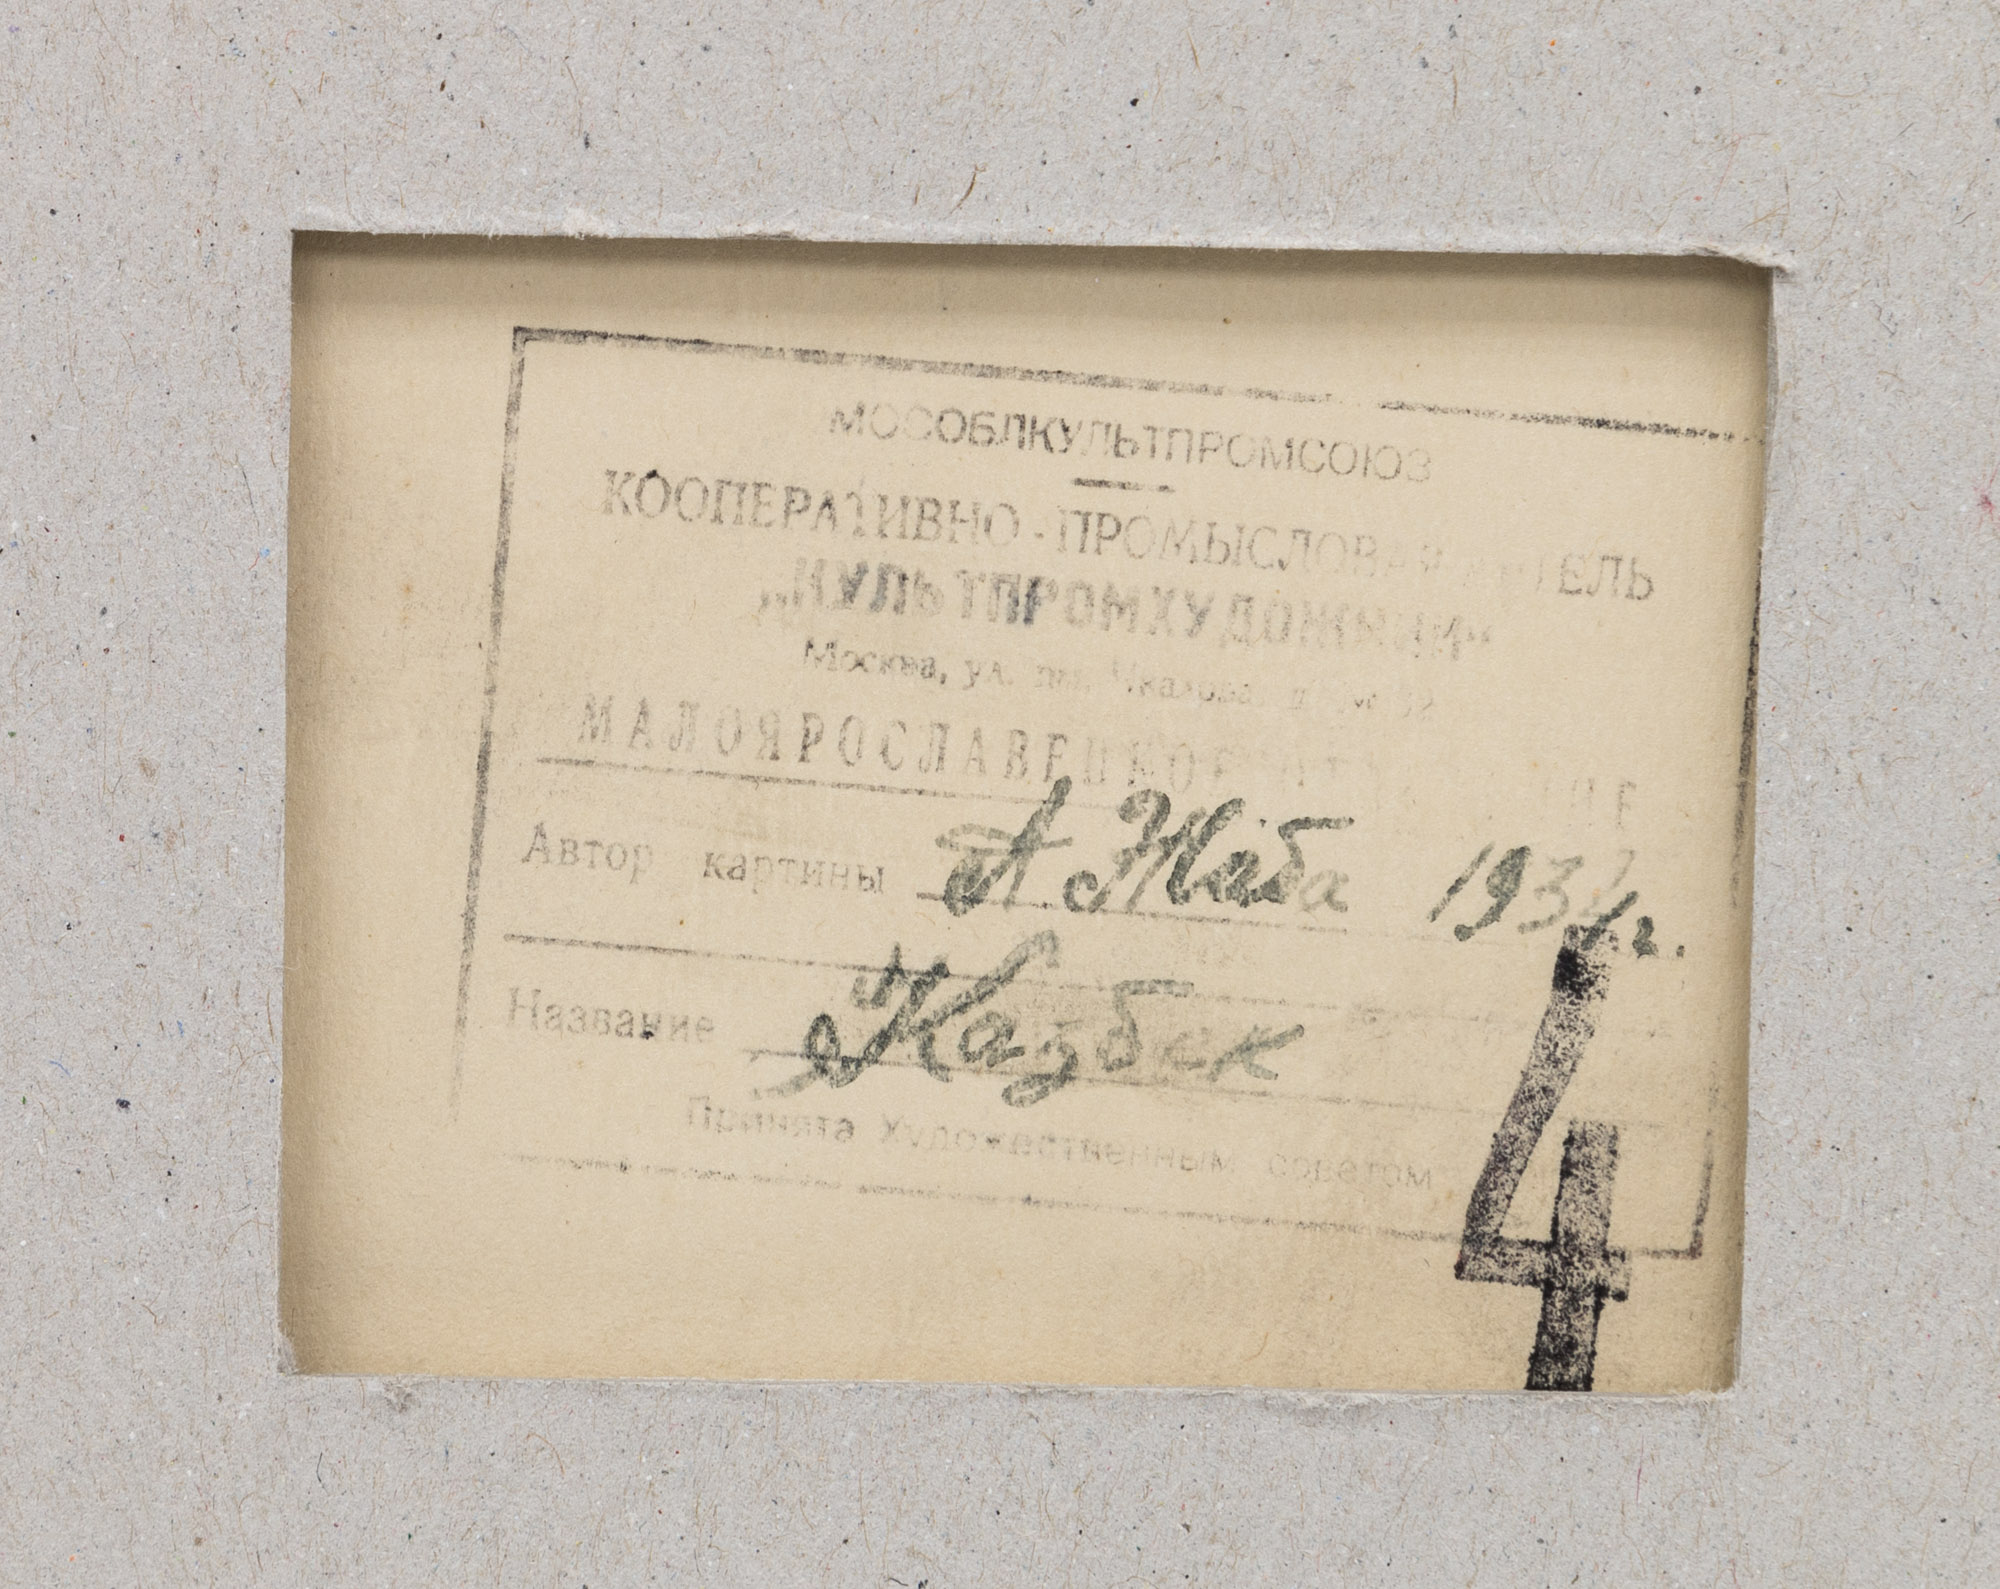 МОСОБЛКУЛЬТПРОМСОЮЗ
КООПЕРАТИВНО-ПРОМЫСЛОВАЯ АРТЕЛЬ
„КУЛЬТПРОМХУДОЖНИК“
Москва, ул. им. Чкалова
МАЛОЯРОСЛАВЕЦКОЕ
Автор картины А Жаба 193 г.
Название Казбек
Принята Художественным советом
4